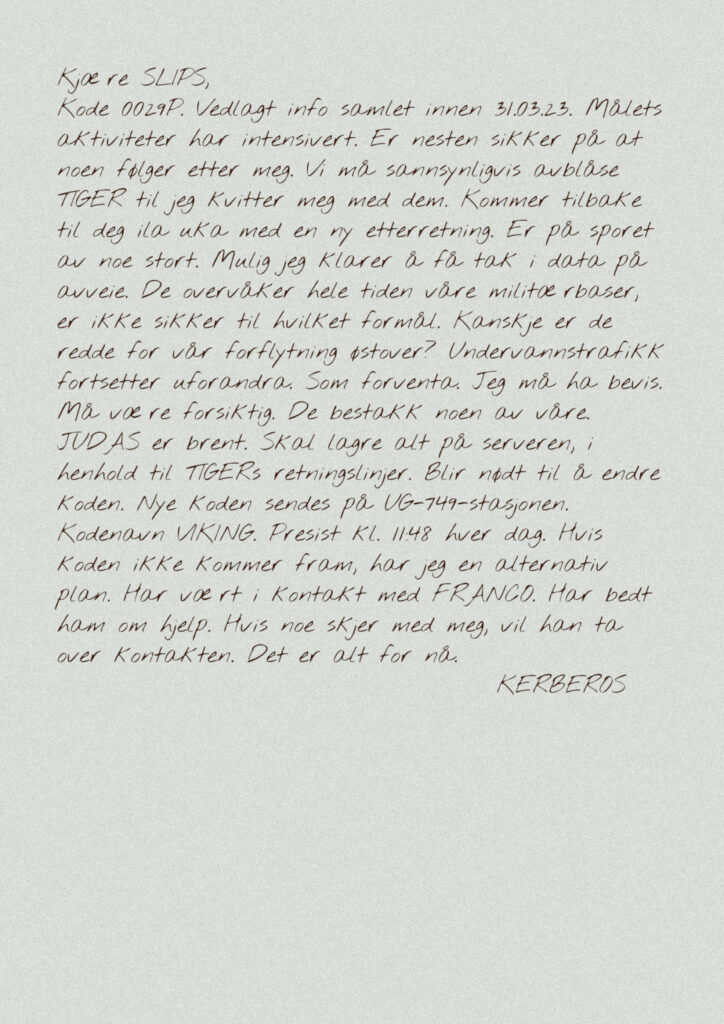 Kjære SLIPS,
Kode 0029P. Vedlagt info samlet innen 31.03.23. Målets
aktiviteter har intensivert. Er nesten sikker på at
noen følger etter meg. Vi må sannsynligvis avblåse
TIGER til jeg kvitter meg med dem. Kommer tilbake
til deg ila uka med en ny etterretning. Er på sporet
av noe stort. Mulig jeg klarer å få tak i data på
avveie. De overvåker hele tiden våre militærbaser,
er ikke sikker til hvilket formål. Kanskje er de
redde for vår forflytning østover? Undervannstrafikk
fortsetter uforandra. Som forventa. Jeg må ha bevis.
Må være forsiktig. De bestakk noen av våre.
JUDAS er brent. Skal lagre alt på serveren, i
henhold til TIGERs retningslinjer. Blir nødt til å endre
koden. Nye koden sendes på UG-749-stasjonen.
Kodenavn VIKING. Presist kl. 11:48 hver dag. Hvis
koden ikke kommer fram, har jeg en alternativ
plan. Har vært i kontakt med FRANCO. Har bedt
ham om hjelp. Hvis noe skjer med meg, vil han ta
over kontakten. Det er alt for nå.
KERBEROS